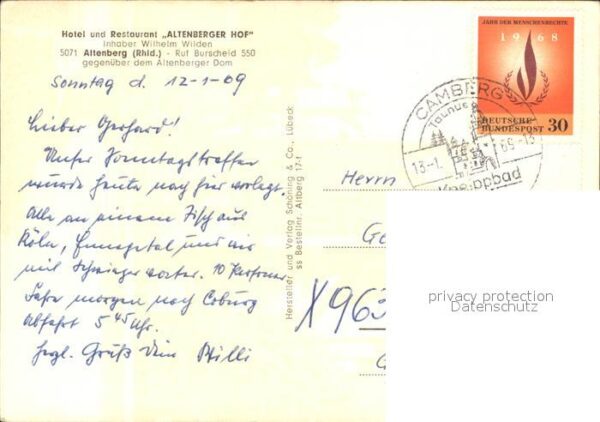 Hotel und Restaurant „ALTENBERGER HOF"
Inhaber Wilhelm Wilden
5071 Altenberg (Rhld.) - Ruf Burscheid 550
gegenüber dem Altenberger Dom
Sonntag d. 12-1-69
Lieber Gerhard!
Unser Sonntagstreffen
wurde heute nach hier verlegt.
Alle an einem Tisch aus
Köln, und wir
mit . 10 Personen
morgen nach Coburg
Abfahrt 5 45 Uhr.
Herzl. Gruß Dein Willi
Hersteller und Verlag Schöning & Co., Lübeck
ss Bestellnr. Altberg 17-1
JAHR DER MENSCHENRECHTE
1968
DEUTSCHE
BUNDESPOST 30
CAMBERG
Taunus
13-1.
69-
Kneippbad
Herrn
Ge
X963
G
privacy protection
Datenschutz